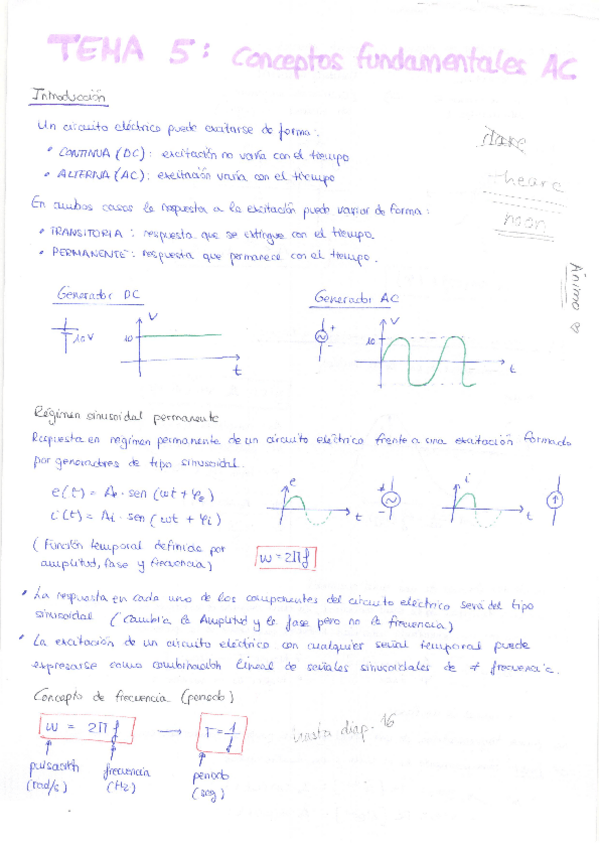 TEMA 5: Conceptos fundamentales AC
Introducción
Un circuito eléctrico puede excitarse de forma:
• CONTINUA (DC): excitación no varía con el tiempo
• ALTERNA (AC): excitación varía con el tiempo
En ambos casos la respuesta a la excitación puede variar de forma:
• TRANSITORIA: respuesta que se extingue con el tiempo.
• PERMANENTE: respuesta que permanece con el tiempo.
hearc
noon
Ánimo
Generador DC
10V
V
10
t
Generador AC
+
-
V
10
t
Régimen sinusoidal permanente
Respuesta en regimen permanente de un circuito eléctrico frente a una excitación formado
por generadores de tipo sinusoidal.
e(t) = Ae · sen (ωt + φe)
i(t) = Ai · sen (ωt + φi)
e
t
+
-
i
t
(Función temporal definida por
amplitud, fase y frecuencia)
ω = 2Πf
• La respuesta en cada uno de los componentes del circuito eléctrico será del tipo
sinusoidal (Cambia la Amplitud y la fase pero no la frecuencia)
• La excitación de un circuito eléctrico con cualquier señal temporal puede
expresarse como combinación lineal de señales sinusoidales de ≠ frecuencia.
Concepto de frecuencia (periodo)
ω = 2Π f → T = 1/f
hasta diap. 16
pulsación
(rad/s)
frecuencia
(Hz)
periodo
(seg)